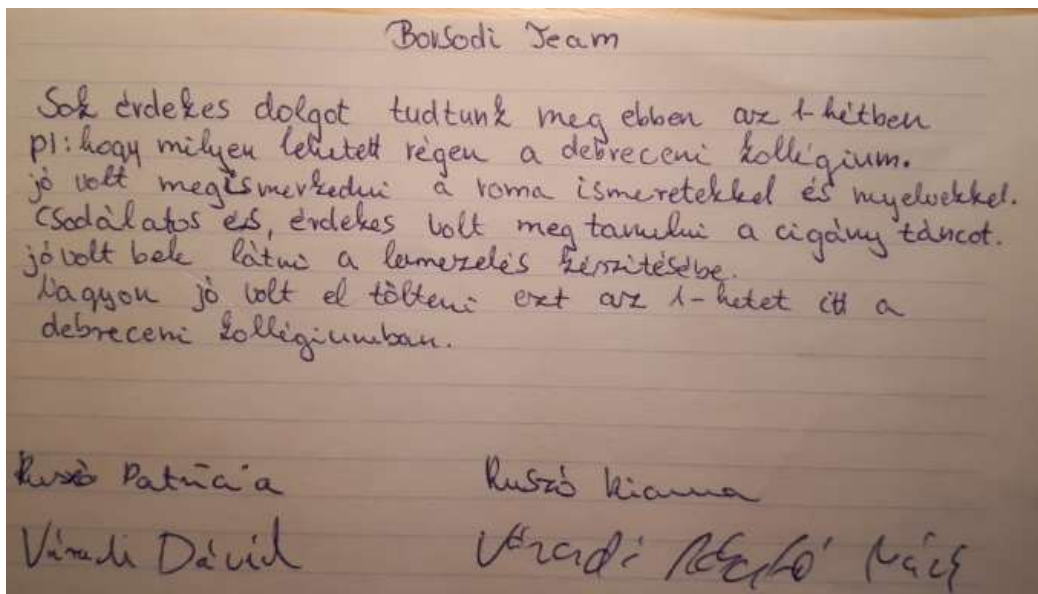 Borsodi Team
Sok érdekes dolgot tudtunk meg ebben az 1-hétben
pl: hogy milyen lehetett régen a debreceni kollégium.
jó volt megismerkedni a roma ismeretekkel és nyelvekkel.
Csodálatos és, érdekes volt meg tanulni a cigány táncot.
jó volt bele látni a lemezelés készítésébe.
Nagyon jó volt el tölteni ezt az 1-hetet itt a
debreceni kollégiumban.
Ruszó Patrícia
Ruszó Kianna
Váradi Dávid
Váradi